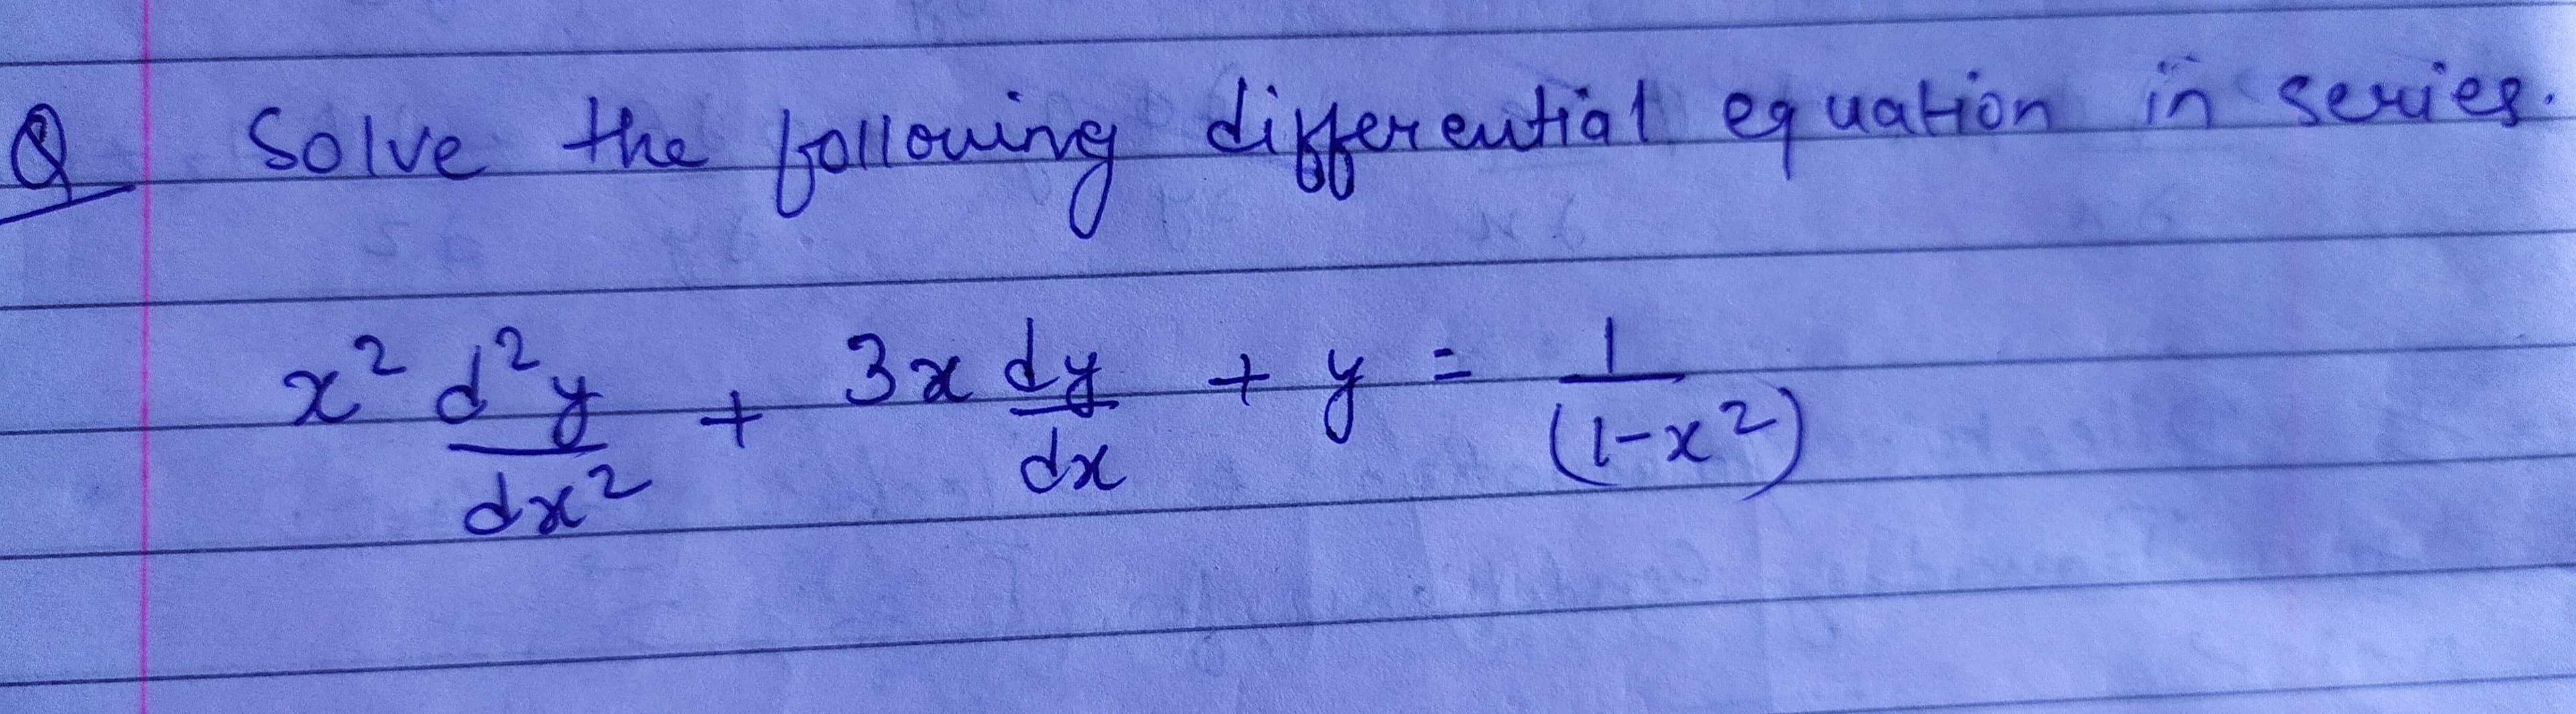 Q Solve the following differential equation in series.
x² d²y/dx² + 3x dy/dx + y = 1/(1-x²)